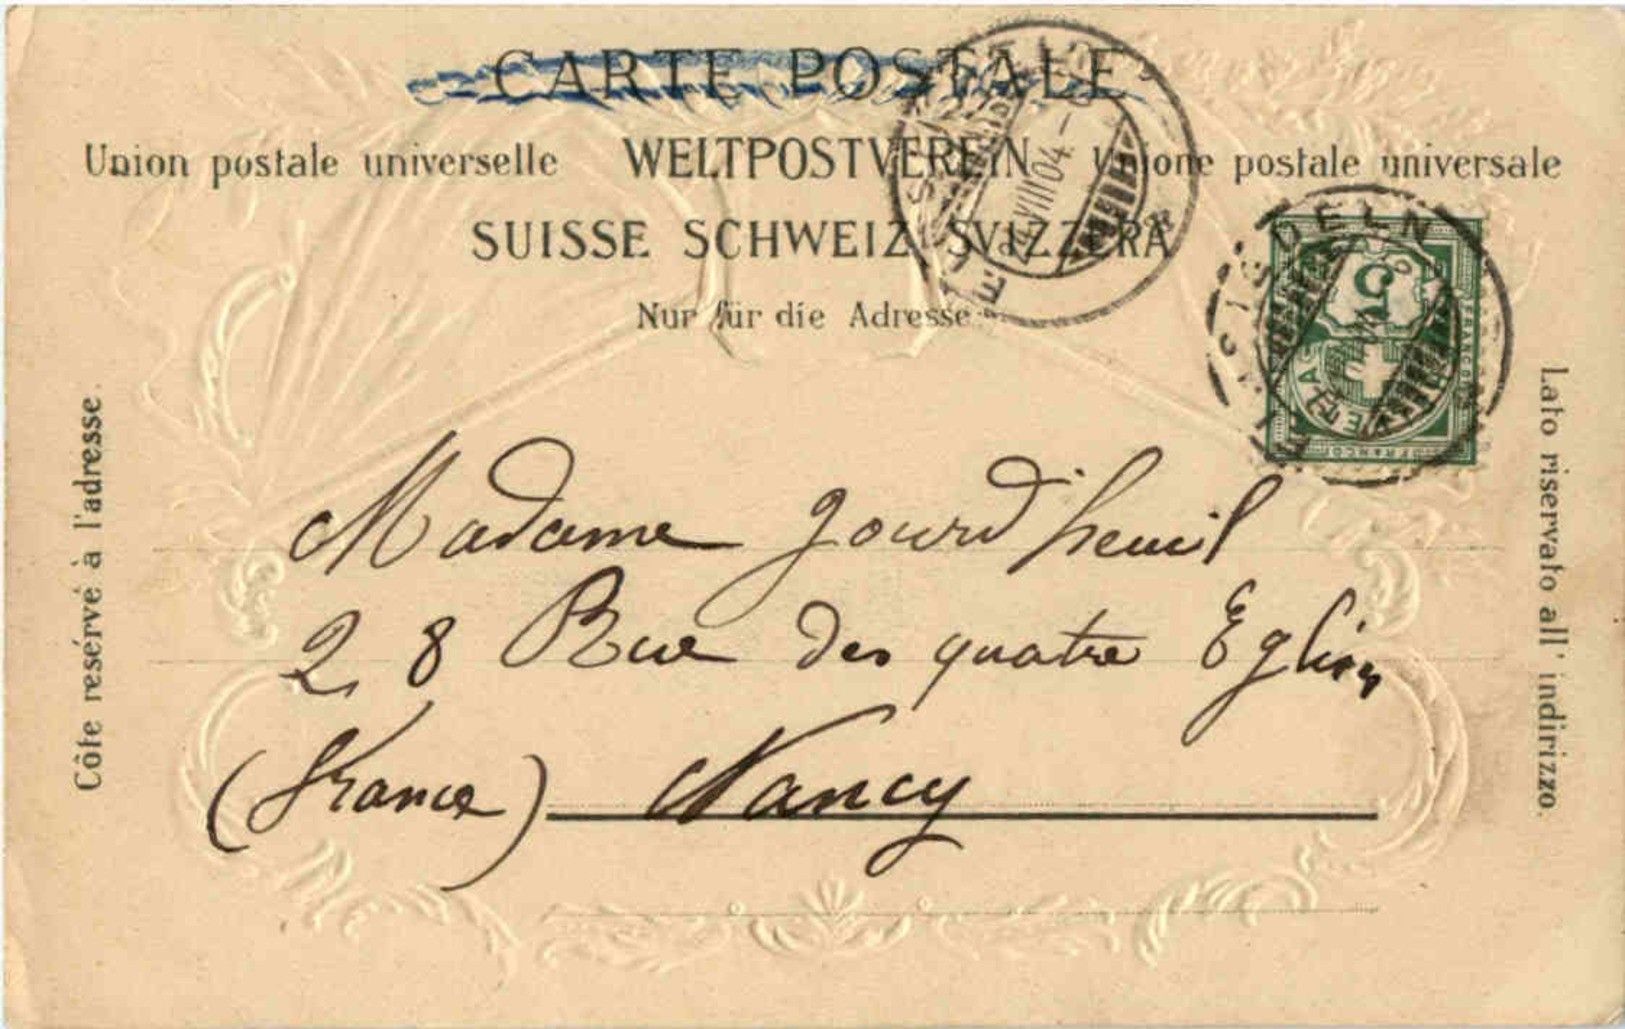 CARTE POSTALE
Union postale universelle WELTPOSTVEREIN Unione postale universale
SUISSE SCHWEIZ SVIZZERA
Nur für die Adresse
Côte resérvé à l'adresse.
Lato riservato all' indirizzo.
VIII 04
5
FRANCO
Madame Jourd'heuil
28 Rue des quatre Eglises
(France) Nancy